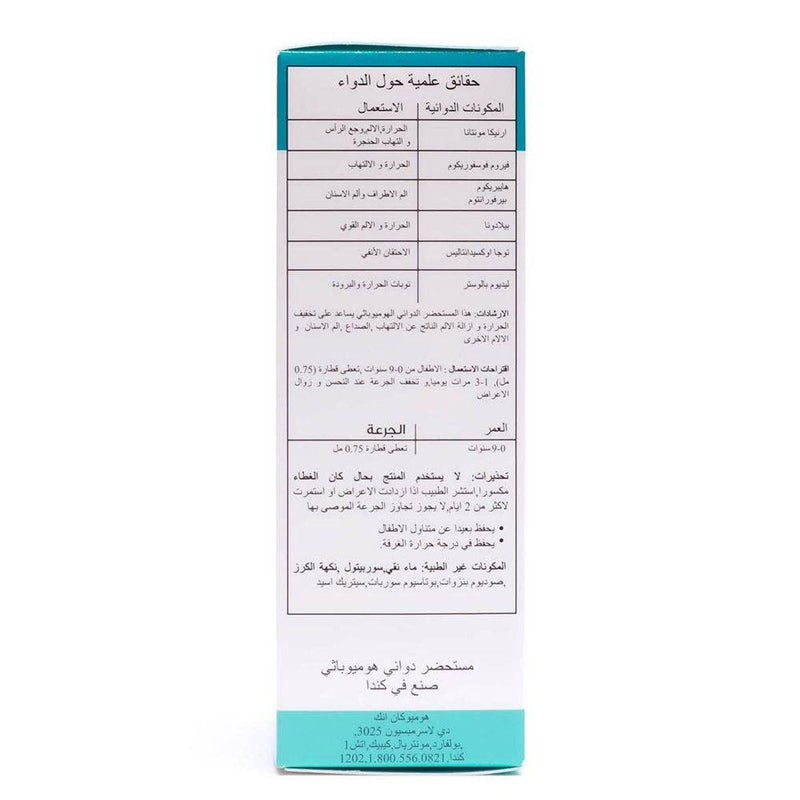 حقائق علمية حول الدواء
المكونات الدوائية الاستعمال
ارنيكا مونتانا الحرارة,الالم,وجع الرأس
و التهاب الحنجرة
فيروم فوسفوريكوم الحرارة و الالتهاب
هايبريكوم
بيرفوراتتوم الم الاطراف وألم الاسنان
بيلادونا الحرارة و الالم القوي
توجا اوكسيدانتاليس الاحتقان الأنفي
ليديوم بالوستر نوبات الحرارة والبرودة
الارشادات: هذا المستحضر الدوائي الهوميوباثي يساعد على تخفيف
الحرارة و ازالة الالم الناتج عن الالتهاب ,الصداع ,الم الاسنان و
الالام الاخرى
اقتراحات الاستعمال : الاطفال من 0-9 سنوات ,تعطى قطارة (0.75
مل), 1-3 مرات يوميا,و تخفف الجرعة عند التحسن و زوال
الاعراض
العمر الجرعة
0-9 سنوات تعطى قطارة 0.75 مل
تحذيرات: لا يستخدم المنتج بحال كان الغطاء
مكسورا,استشر الطبيب اذا ازدادت الاعراض او استمرت
لاكثر من 2 ايام,لا يجوز تجاوز الجرعة الموصى بها
• يحفظ بعيدا عن متناول الاطفال
• يحفظ في درجة حرارة الغرفة.
المكونات غير الطبية: ماء نقي,سوربيتول ,نكهة الكرز
,صوديوم بنزوات,بوتاسيوم سوربات,سيتريك اسيد
مستحضر دوائي هوميوباثي
صنع في كندا
هوميوكان انك
دي لاسرمبسيون 3025,
بولفارد,مونتريال,كيبيك,اتش1
كندا,1202,1.800.556.0821